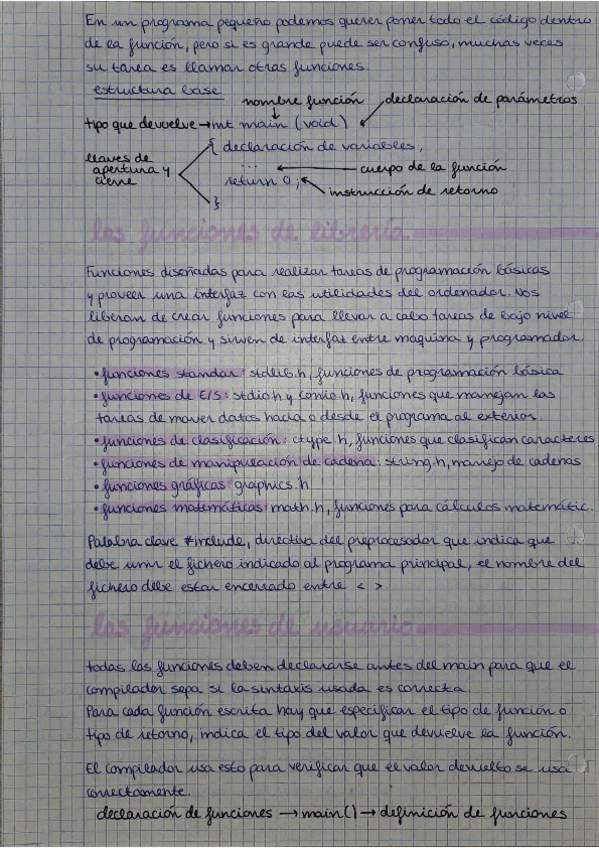 En un programa pequeño podemos querer poner todo el código dentro
de la función, pero si es grande puede ser confuso, muchas veces
su tarea es llamar otras funciones.
estructura base
nombre función
declaración de parámetros
tipo que devuelve → int main (void)
{ declaración de variables;
llaves de
apertura y
cierre
...
cuerpo de la función
return 0;
instrucción de retorno
}
las funciones de librería
Funciones diseñadas para realizar tareas de programación básicas
y proveer una interfaz con las utilidades del ordenador. Nos
liberan de crear funciones para llevar a cabo tareas de bajo nivel
de programación y sirven de interfaz entre maquina y programador.
• funciones standar: stdlib.h, funciones de programación básica
• funciones de E/S: stdio.h y conio.h, funciones que manejan las
tareas de mover datos hacia o desde el programa al exterior.
• funciones de clasificación: ctype.h, funciones que clasifican caracteres
• funciones de manipulación de cadena: string.h, manejo de cadenas
• funciones gráficas: graphics.h
• funciones matemáticas: math.h, funciones para cálculos matemátic.
Palabra clave #include, directiva del preprocesador que indica que
debe unir el fichero indicado al programa principal, el nombre del
fichero debe estar encerrado entre < >
las funciones de usuario
todas las funciones deben declararse antes del main para que el
compilador sepa si la sintaxis usada es correcta.
Para cada función escrita hay que especificar el tipo de función o
tipo de retorno, indica el tipo del valor que devuelve la función.
El compilador usa esto para verificar que el valor devuelto se usa
correctamente.
declaración de funciones → main() → definición de funciones